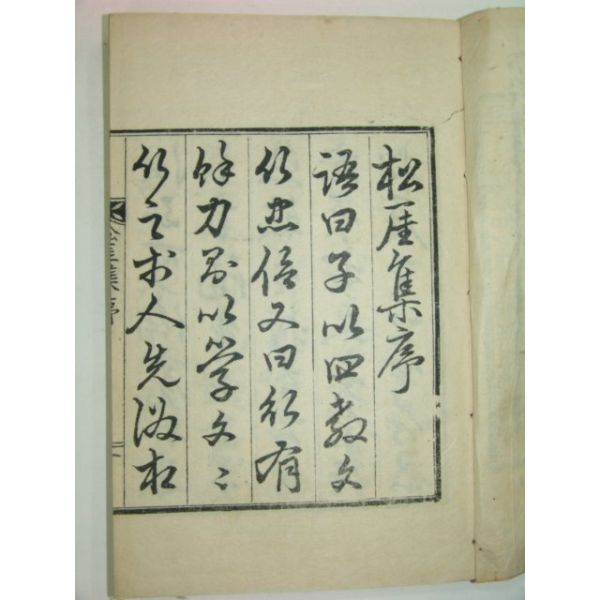 松厓集序
語曰子以四教文
行忠信又曰行有
餘力則以學文文
行之於人先後相
松厓集序